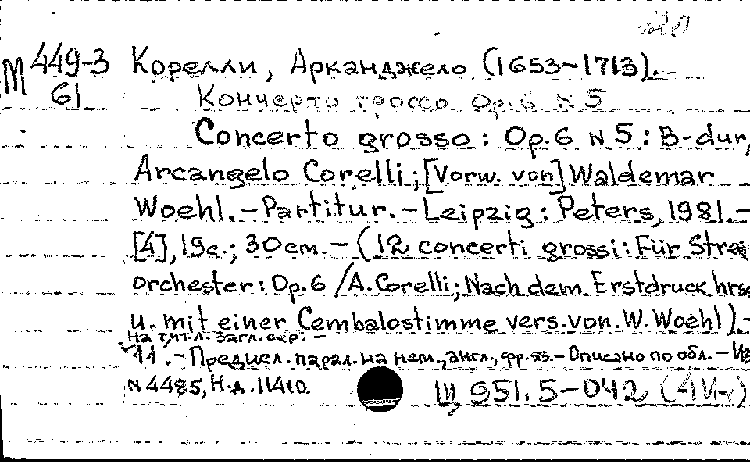 М 449-3 Корелли, Арканджело (1653-1713).
61 Кончерто гроссо Op.6 N5
Concerto grosso: Op.6 N5: B-dur,
Arcangelo Corelli; [Vorw. von] Waldemar
Woehl.-Partitur.-Leipzig: Peters, 1981.-
[4], 19c.; 30cm.-(12 concerti grossi: Für Strei
orchester: Op.6/A.Corelli; Nach dem Erstdruck hrsg
u. mit einer Cembalostimme vers. von W. Woehl).-
На тит.л. загл. сер:-
11.-Предисл. парал. на нем., англ., фр. яз.-Описано по обл.-Из
N 4485, Н.д. 11410. Ш 951.5-042